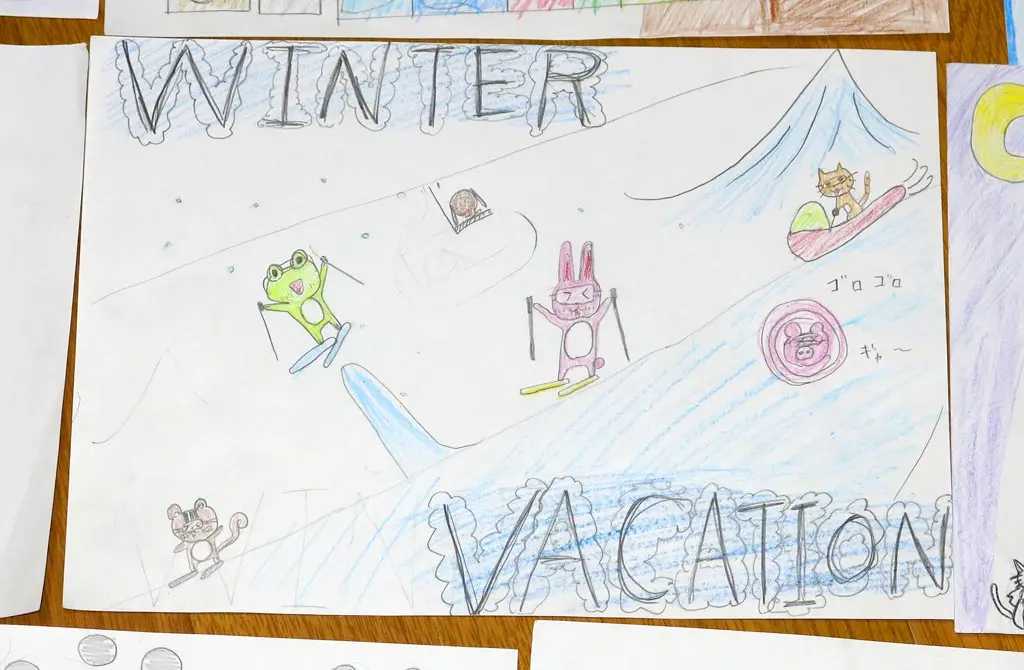 WINTER
ゴロ ゴロ
ギャ〜
VACATION